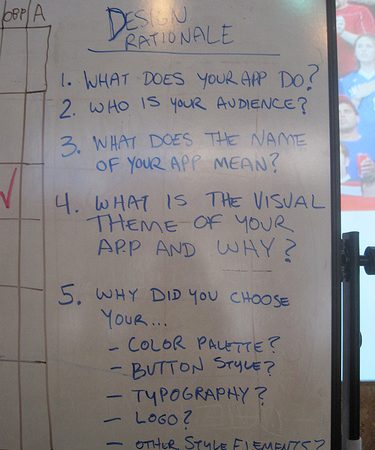 OBP A
DESIGN
RATIONALE
1. WHAT DOES YOUR APP DO?
2. WHO IS YOUR AUDIENCE?
3. WHAT DOES THE NAME
OF YOUR APP MEAN?
4. WHAT IS THE VISUAL
THEME OF YOUR
APP AND WHY?
5. WHY DID YOU CHOOSE
YOUR...
- COLOR PALETTE?
- BUTTON STYLE?
- TYPOGRAPHY?
- LOGO?
- OTHER STYLE ELEMENTS?